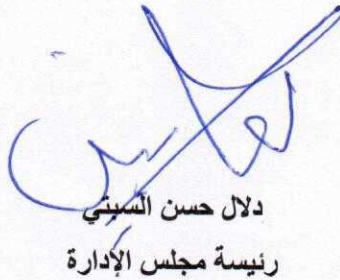 دلال حسن السبتي
رئيسة مجلس الإدارة